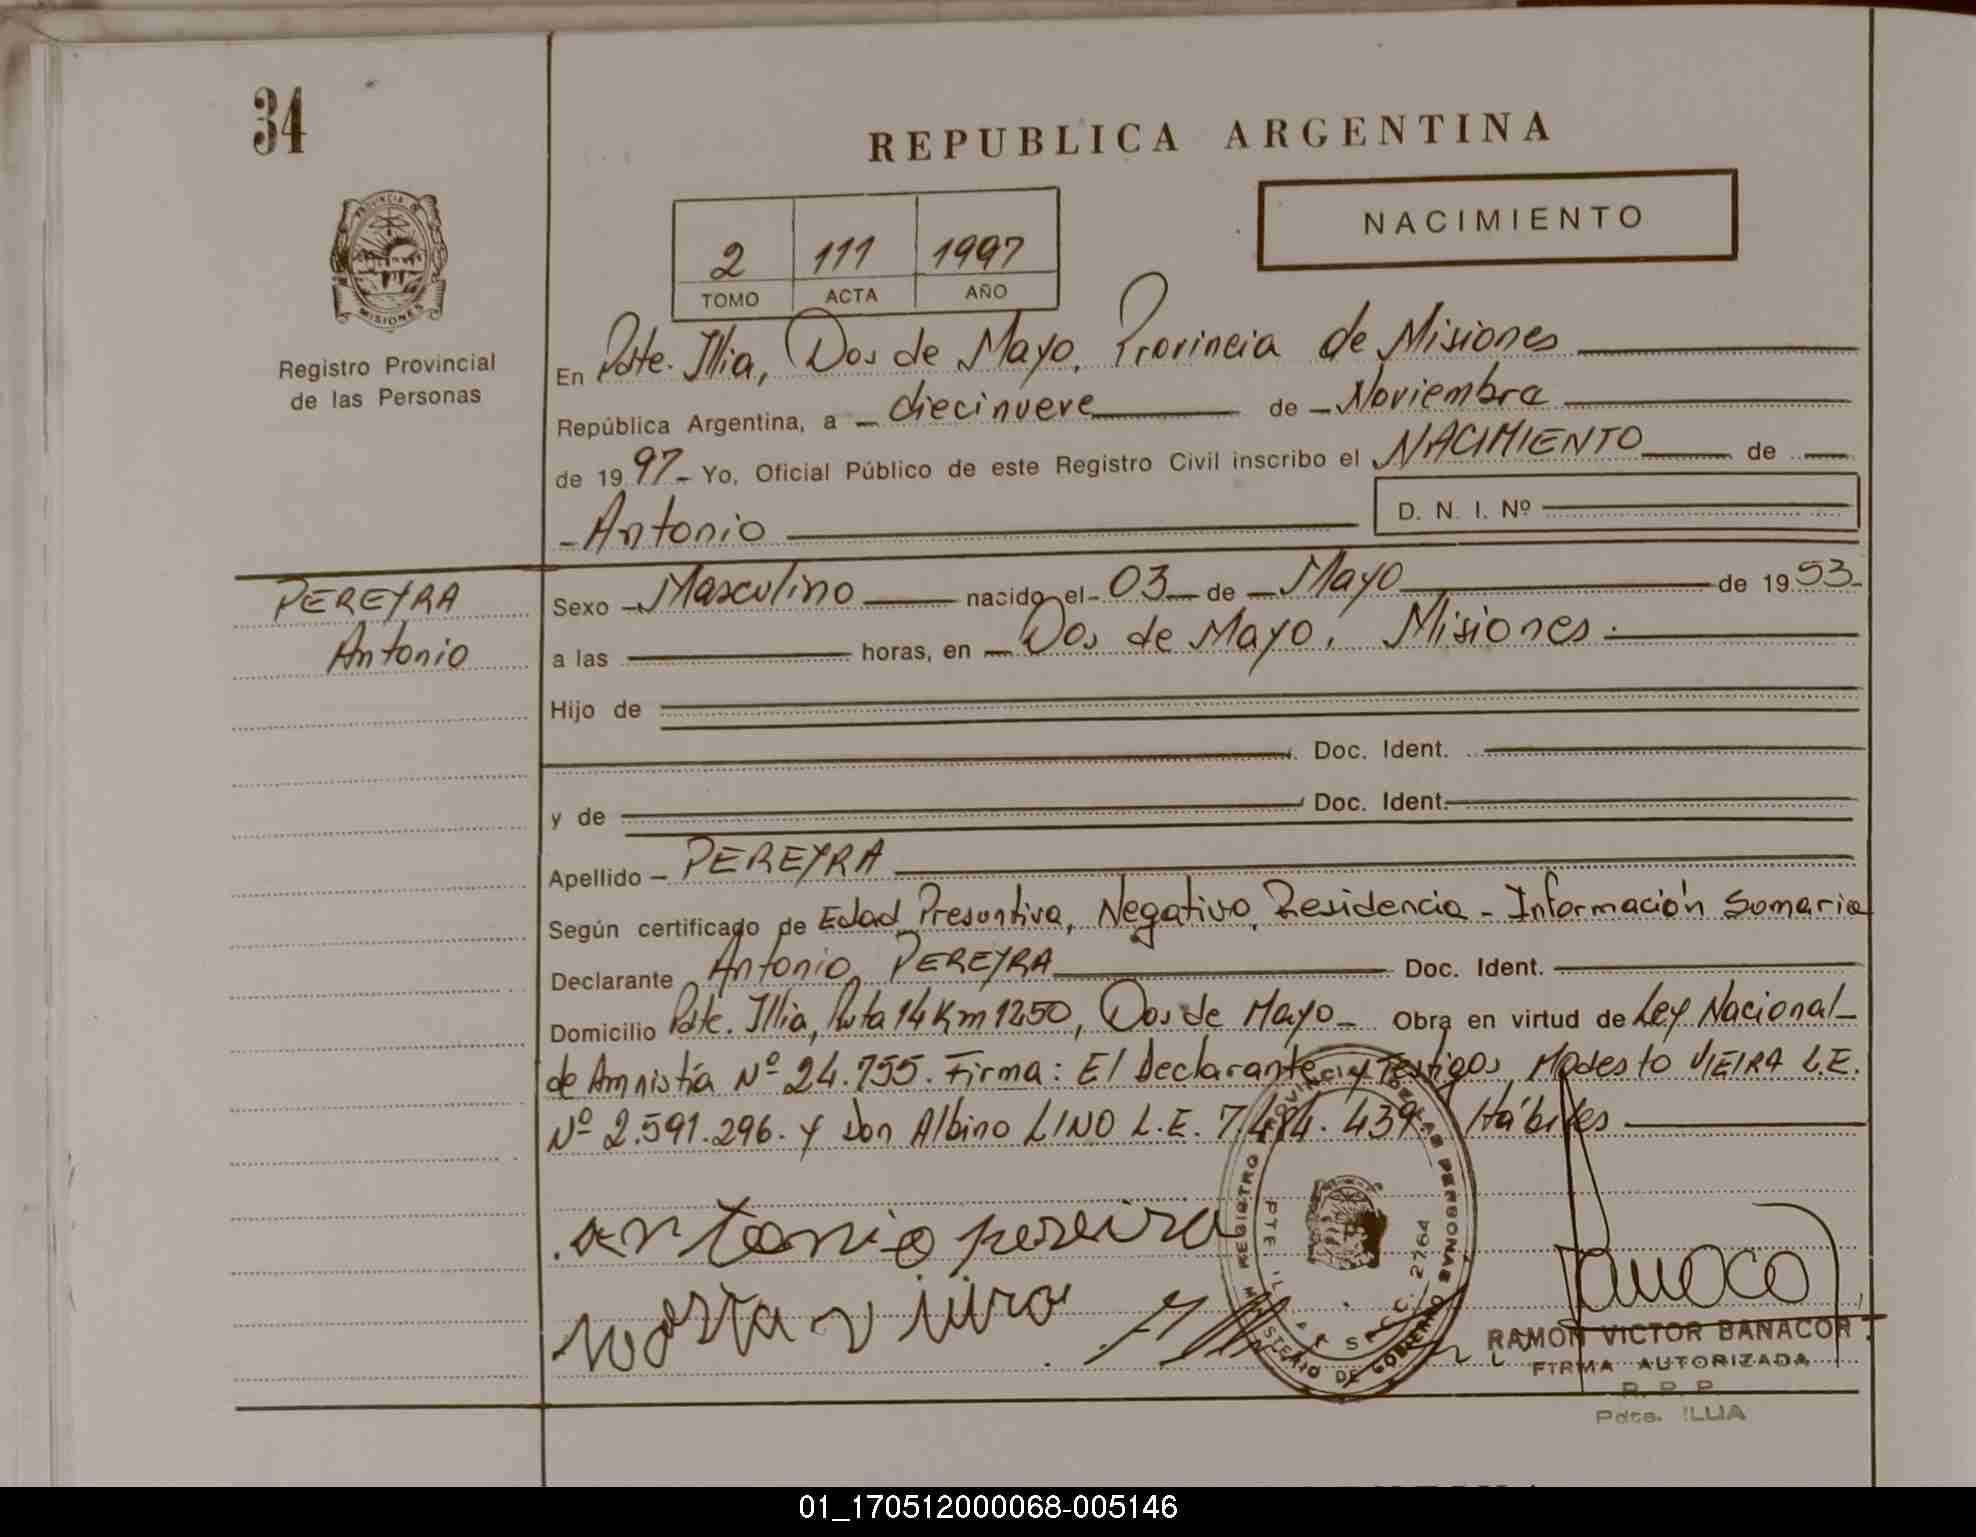 34
REPUBLICA ARGENTINA
NACIMIENTO
2 111 1997
TOMO ACTA AÑO
PROVINCIA DE
MISIONES
Registro Provincial
de las Personas
En Pdte. Illia, Dos de Mayo, Provincia de Misiones
República Argentina, a diecinueve de Noviembre
de 1997 Yo, Oficial Público de este Registro Civil inscribo el NACIMIENTO de
Antonio
D. N. I. Nº
PEREYRA
Antonio
Sexo Masculino nacido el 03 de Mayo de 1953
a las horas, en Dos de Mayo, Misiones.
Hijo de
Doc. Ident.
y de Doc. Ident.
Apellido PEREYRA
Según certificado de Edad Presuntiva, Negativo, Residencia - Información Sumaria
Declarante Antonio PEREYRA Doc. Ident.
Domicilio Pdte. Illia, Ruta 14 Km 1250, Dos de Mayo Obra en virtud de Ley Nacional
de Amnistía Nº 24.755. Firma: El Declarante y Testigos Modesto VIEIRA L.E.
Nº 2.591.296. y Don Albino LINO L.E. 7.484.439 Hábiles
antonio pereira
REGISTRO PROVINCIAL DE LAS PERSONAS
PTE. ILLIA SECC. 2764
MINISTERIO DE GOBIERNO
RAMON VICTOR BANACOR
FIRMA AUTORIZADA
R. P. P.
Pdte. ILLIA
01_170512000068-005146